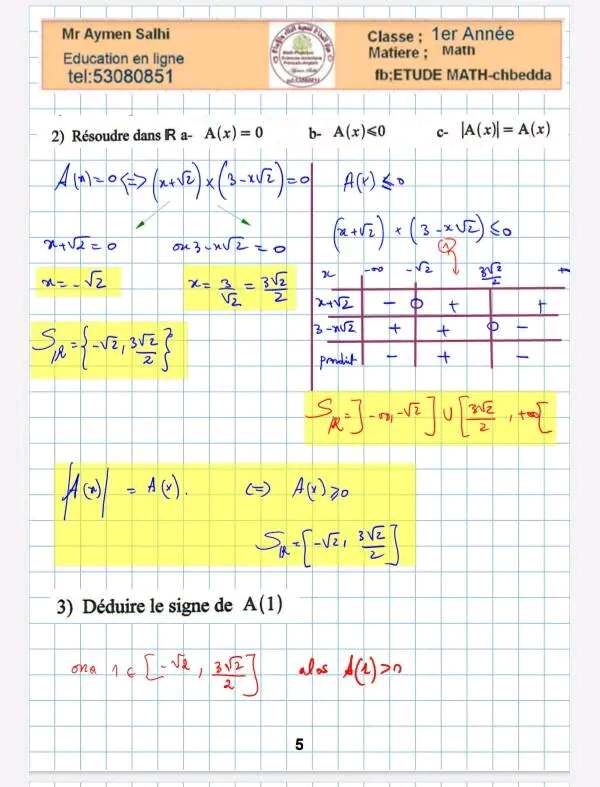 Mr Aymen Salhi
Education en ligne
tel:53080851
Classe ; 1er Année
Matiere ; Math
fb;ETUDE MATH-chbedda
2) Résoudre dans ℝ a- A(x) = 0 b- A(x)⩽0 c- |A(x)| = A(x)
A(x)=0 <=> (x+√2) × (3-x√2) = 0
x+√2 = 0 ou 3-x√2 = 0
x = -√2 x = 3/√2 = 3√2/2
S_ℝ = {-√2, 3√2/2}
A(x) ⩽ 0
(x+√2) × (3-x√2) ⩽ 0
1
x -∞ -√2 3√2/2 +
x+√2 - 0 + +
3-x√2 + + 0 -
produit - + -
S_ℝ = ]-∞, -√2] ∪ [3√2/2, +∞[
|A(x)| = A(x). <=> A(x) ⩾ 0
S_ℝ = [-√2, 3√2/2]
3) Déduire le signe de A(1)
ona 1 ∈ [-√2, 3√2/2] alos A(1) > 0
5